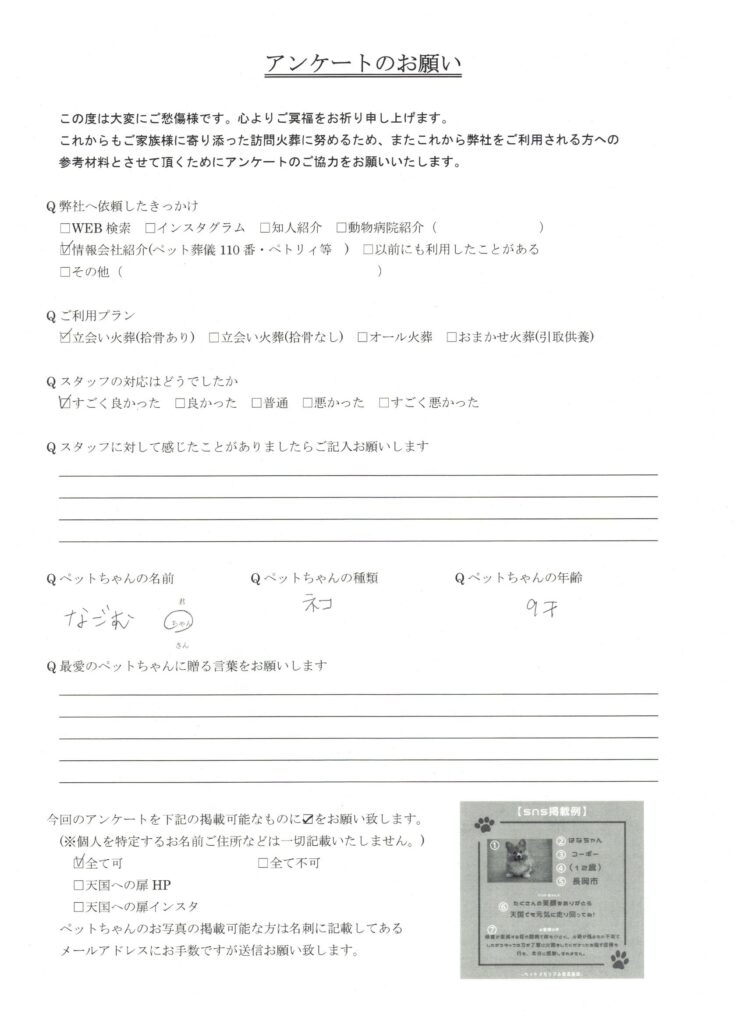 アンケートのお願い
この度は大変にご愁傷様です。心よりご冥福をお祈り申し上げます。
これからもご家族様に寄り添った訪問火葬に努めるため、またこれから弊社をご利用される方への
参考材料とさせて頂くためにアンケートのご協力をお願いいたします。
Q 弊社へ依頼したきっかけ
□WEB 検索 □インスタグラム □知人紹介 □動物病院紹介（ ）
☑情報会社紹介(ペット葬儀 110 番・ペトリィ等 ) □以前にも利用したことがある
□その他（ ）
Q ご利用プラン
☑立会い火葬(拾骨あり) □立会い火葬(拾骨なし) □オール火葬 □おまかせ火葬(引取供養)
Q スタッフの対応はどうでしたか
☑すごく良かった □良かった □普通 □悪かった □すごく悪かった
Q スタッフに対して感じたことがありましたらご記入お願いします
Q ペットちゃんの名前 Q ペットちゃんの種類 Q ペットちゃんの年齢
君
なごむ ちゃん ネコ 9才
さん
Q 最愛のペットちゃんに贈る言葉をお願いします
今回のアンケートを下記の掲載可能なものに☑をお願い致します。
(※個人を特定するお名前ご住所などは一切記載いたしません。)
☑全て可 □全て不可
□天国への扉 HP
□天国への扉インスタ
ペットちゃんのお写真の掲載可能な方は名刺に記載してある
メールアドレスにお手数ですが送信お願い致します。
【sns掲載例】
① ② はなちゃん
③ コーギー
④ (12歳)
⑤ 長岡市
⑥ たくさんの笑顔をありがとう
天国でも元気に走り回ってね!
⑦